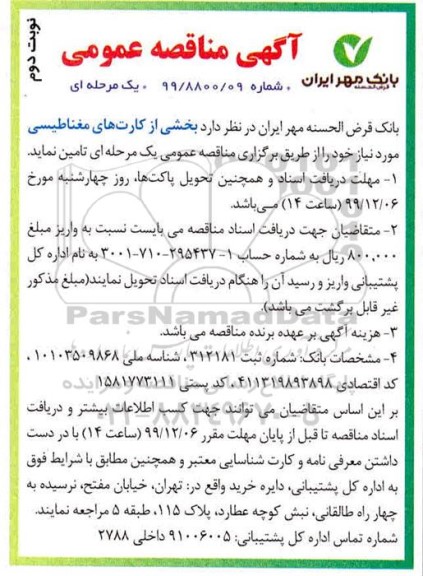 نوبت دوم
بانک مهر ایران
قرض الحسنه
آگهی مناقصه عمومی
• شماره ۹۹/۸۸۰۰/۰۹ • یک مرحله ای
بانک قرض الحسنه مهر ایران در نظر دارد بخشی از کارت‌های مغناطیسی
مورد نیاز خود را از طریق برگزاری مناقصه عمومی یک مرحله ای تامین نماید.
۱- مهلت دریافت اسناد و همچنین تحویل پاکت‌ها، روز چهارشنبه مورخ
۹۹/۱۲/۰۶ (ساعت ۱۴) مـی‌باشد.
۲- متقاضیان جهت دریافت اسناد مناقصه می بایست نسبت به واریز مبلغ
۸۰۰,۰۰۰ ریال به شماره حساب ۱-۲۹۵۴۳۷-۷۱۰-۳۰۰۱ به نام اداره کل
پشتیبانی واریز و رسید آن را هنگام دریافت اسناد تحویل نمایند(مبلغ مذکور
غیر قابل برگشت می باشد).
ParsNamadData
۳- هزینه آگهی بر عهده برنده مناقصه می باشد.
۴- مشخصات بانک: شماره ثبت ۳۱۲۱۸۱ ، شناسه ملی ۱۰۱۰۳۵۰۹۸۶۸ ،
کد اقتصادی ۴۱۱۳۱۹۸۹۳۸۹۸ ، کد پستی ۱۵۸۱۷۷۳۱۱۱
بر این اساس متقاضیان می توانند جهت کسب اطلاعات بیشتر و دریافت
اسناد مناقصه تا قبل از پایان مهلت مقرر ۹۹/۱۲/۰۶ (ساعت ۱۴) با در دست
داشتن معرفی نامه و کارت شناسایی معتبر و همچنین مطابق با شرایط فوق
به اداره کل پشتیبانی، دایره خرید واقع در: تهران، خیابان مفتح، نرسیده به
چهار راه طالقانی، نبش کوچه عطارد، پلاک ۱۱۵، طبقه ۵ مراجعه نمایند.
شماره تماس اداره کل پشتیبانی: ۹۱۰۰۶۰۰۵ داخلی ۲۷۸۸